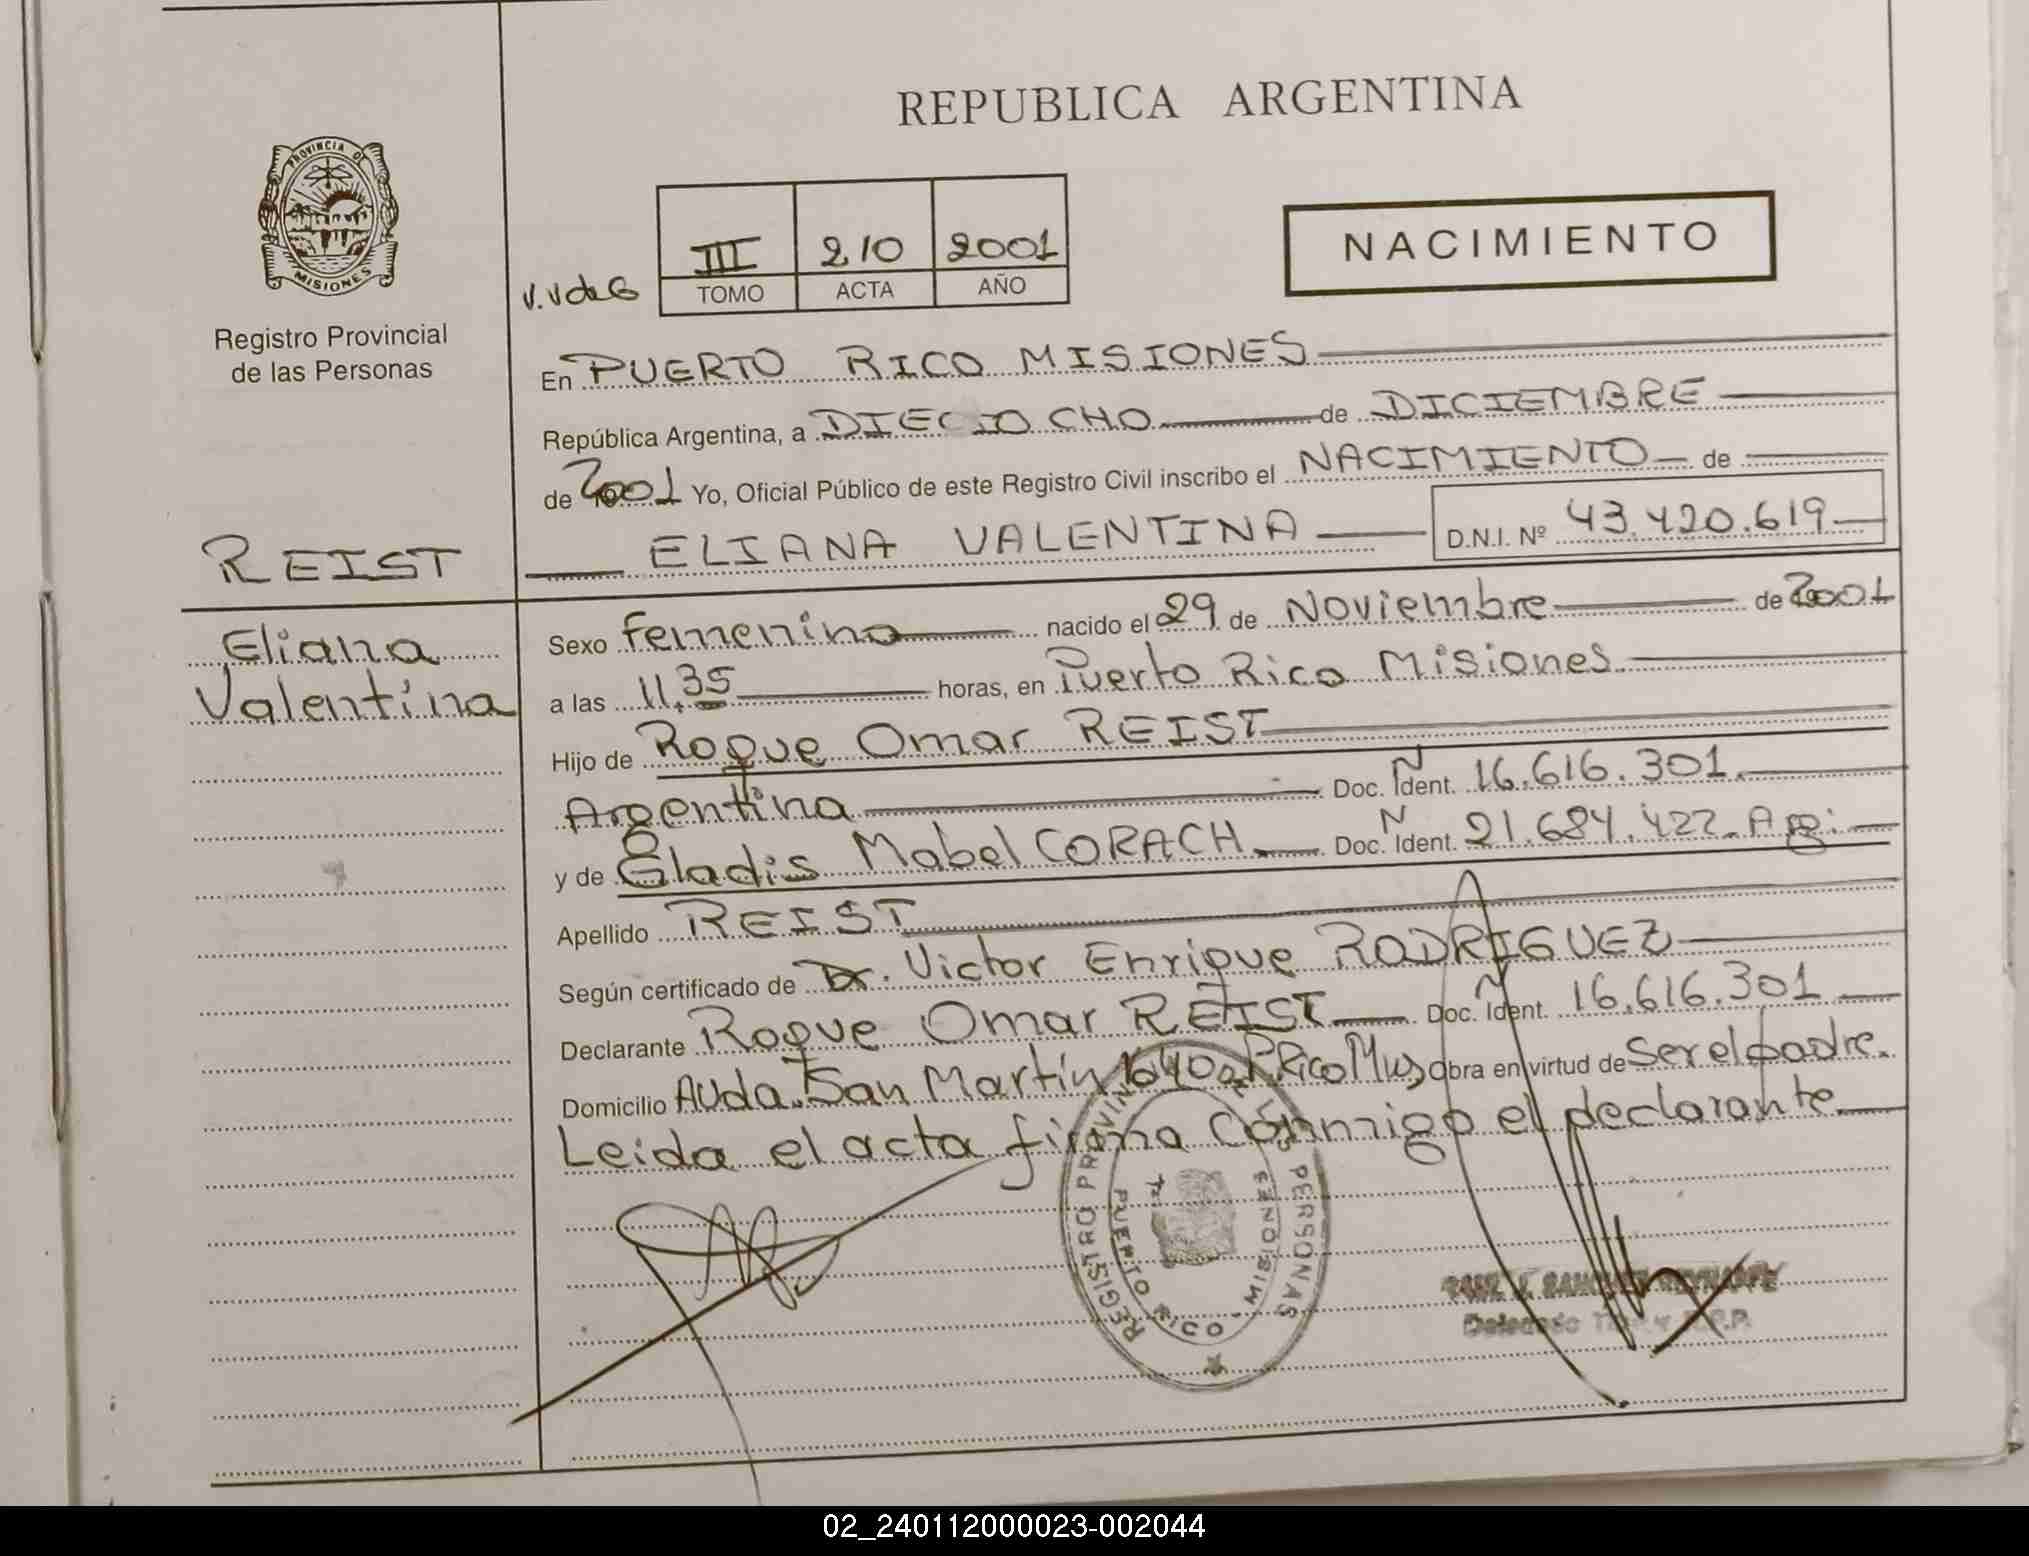 REPUBLICA ARGENTINA
PROVINCIA DE
MISIONES
Registro Provincial
de las Personas
V.V de G
III 210 2001
TOMO ACTA AÑO
NACIMIENTO
En PUERTO RICO MISIONES
República Argentina, a DIECIOCHO de DICIEMBRE
de 2001 Yo, Oficial Público de este Registro Civil inscribo el NACIMIENTO de
ELIANA VALENTINA D.N.I. Nº 43.420.619
REIST
Eliana
Valentina
Sexo Femenino nacido el 29 de Noviembre de 2001
a las 11.35 horas, en Puerto Rico Misiones
Hijo de Roque Omar REIST
Argentina Doc. N Ident. 16.616.301
y de Gladis Mabel CORACH Doc. N Ident. 21.684.422. Arg.
Apellido REIST
Según certificado de Dr. Victor Enrique RODRIGUEZ
Declarante Roque Omar REIST Doc. N Ident. 16.616.301
Domicilio Avda. San Martín 1640 P. Rico Mnes Obra en virtud de Ser el padre.
Leida el acta firma conmigo el declarante
REGISTRO PROVINCIAL DE LAS PERSONAS
PUERTO RICO - MISIONES
Delegado
02_240112000023-002044